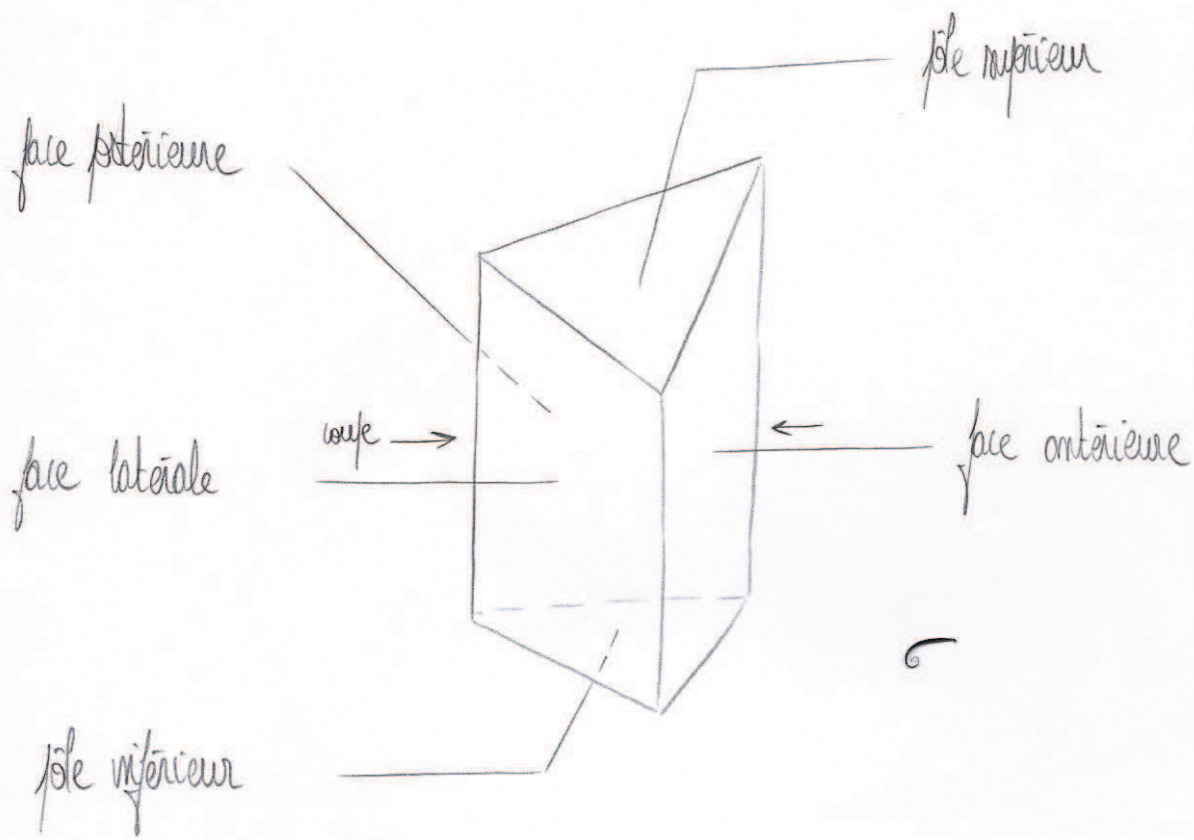 pôle supérieur
face postérieure
coupe
face latérale
face antérieure
pôle inférieur